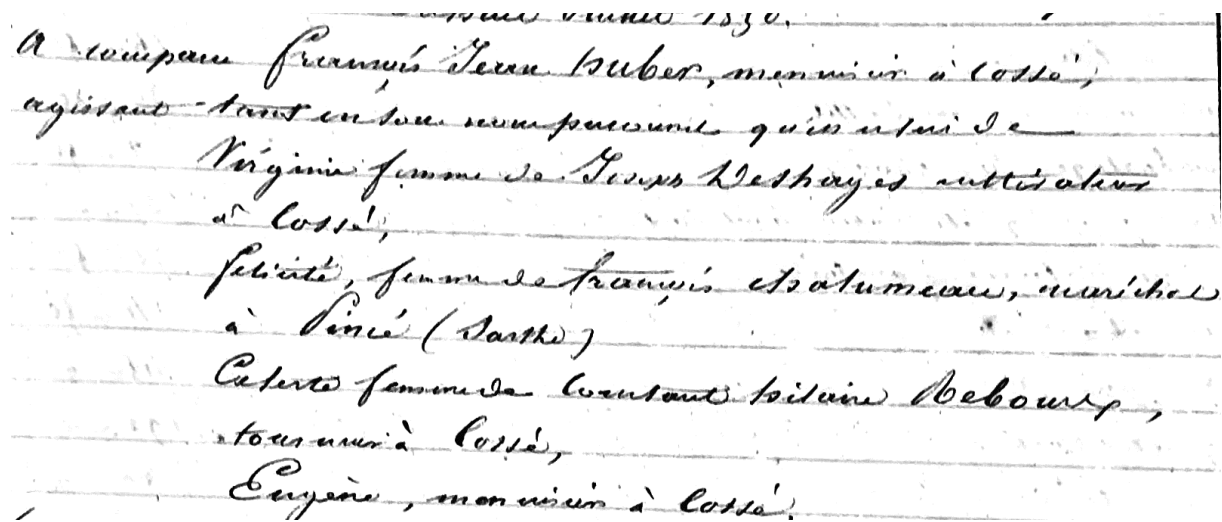 A comparu François Jean huber, menuisier à Cossé,
agissant tant en son nom personnel qu'en celui de
Virginie femme de Joseph Deshayes cultivateur
à Cossé,
félicité, femme de françois Chalumeau, maréchal
à Pincé (Sarthe)
Céleste femme de Constant hilaire Rebours,
tourneur à Cossé,
Eugène, menuisier à Cossé.